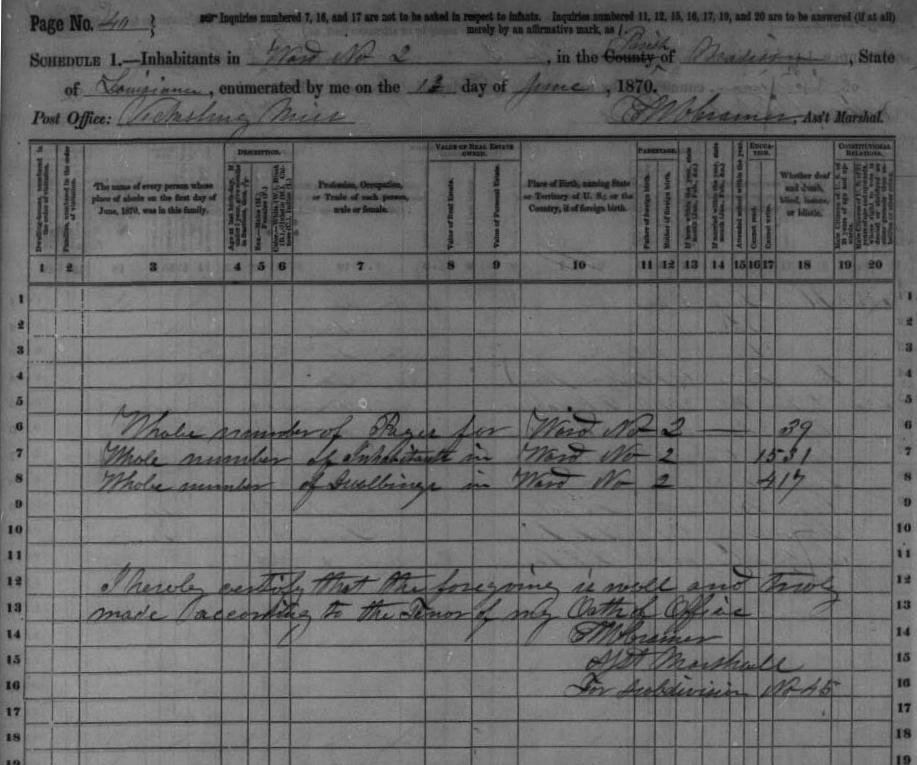 Page No. 40
☞ Inquiries numbered 7, 16, and 17 are not to be asked in respect to infants. Inquiries numbered 11, 12, 15, 16, 17, 19, and 20 are to be answered (if at all)
merely by an affirmative mark, as /.
SCHEDULE 1.—Inhabitants in Ward No 2, in the County Parish of Madison, State
of Louisiana, enumerated by me on the 13 day of June, 1870.
Post Office: Vicksburg Miss Cramer, Ass't Marshal.
DESCRIPTION.
VALUE OF REAL ESTATE OWNED.
PARENTAGE.
EDUCATION.
CONSTITUTIONAL RELATIONS.
Dwelling-houses, numbered in the order of visitation.
Families, numbered in the order of visitation.
The name of every person whose place of abode on the first day of June, 1870, was in this family.
Profession, Occupation, or Trade of each person, male or female.
Value of Real Estate.
Value of Personal Estate.
Place of Birth, naming State or Territory of U. S.; or the Country, if of foreign birth.
Father of foreign birth.
Mother of foreign birth.
Attended school within the year.
Cannot read.
Cannot write.
Whether deaf and dumb, blind, insane, or idiotic.
1 2 3 4 5 6 7 8 9 10 11 12 13 14 15 16 17 18 19 20
1 1
2 2
3 3
4 4
5 5
6 Whole number of Pages for Ward No 2 — 39 6
7 Whole number of Inhabitants in Ward No 2 1531 7
8 Whole number of Dwellings in Ward No 2 417 8
9 9
10 10
11 11
12 I hereby certify that the foregoing is well and truly 12
13 made according to the Tenor of my Oath of Office 13
14 Cramer 14
15 Asst Marshall 15
16 For subdivision No 45 16
17 17
18 18
19 19